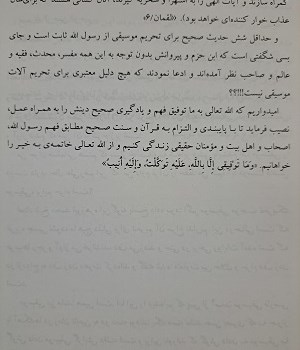 گمراه سازند و آیات الهی را به استهزاء و سخریه گیرند، آنان کسانی هستند که برای‌شان
عذاب خوار کننده‌ای خواهد بود). «لقمان/۶»
و حداقل شش حدیث صحیح برای تحریم موسیقی از رسول الله ثابت است و جای
بسی شگفتی است که ابن حزم و پیروانش بدون توجه به این همه مفسر، محدث، فقیه و
عالم و صاحب نظر آمده‌اند و ادعا نمودند که هیچ دلیل معتبری برای تحریم آلات
موسیقی نیست!!!؟؟
امیدواریم که الله تعالی به ما توفیق فهم و یادگیری صحیح دینش را به همراه عمل،
نصیب فرماید تا با پایبندی و التزام به قرآن و سنت صحیح مطابق فهم رسول الله،
اصحاب و اهل بیت و مؤمنان حقیقی زندگی کنیم و از الله تعالی خاتمه‌ی به خیر را
خواهانیم. «وَمَا تَوْفِيقِي إِلَّا بِاللَّهِ، عَلَيْهِ تَوَكَّلْتُ، وَإِلَيْهِ أُنِيبُ»